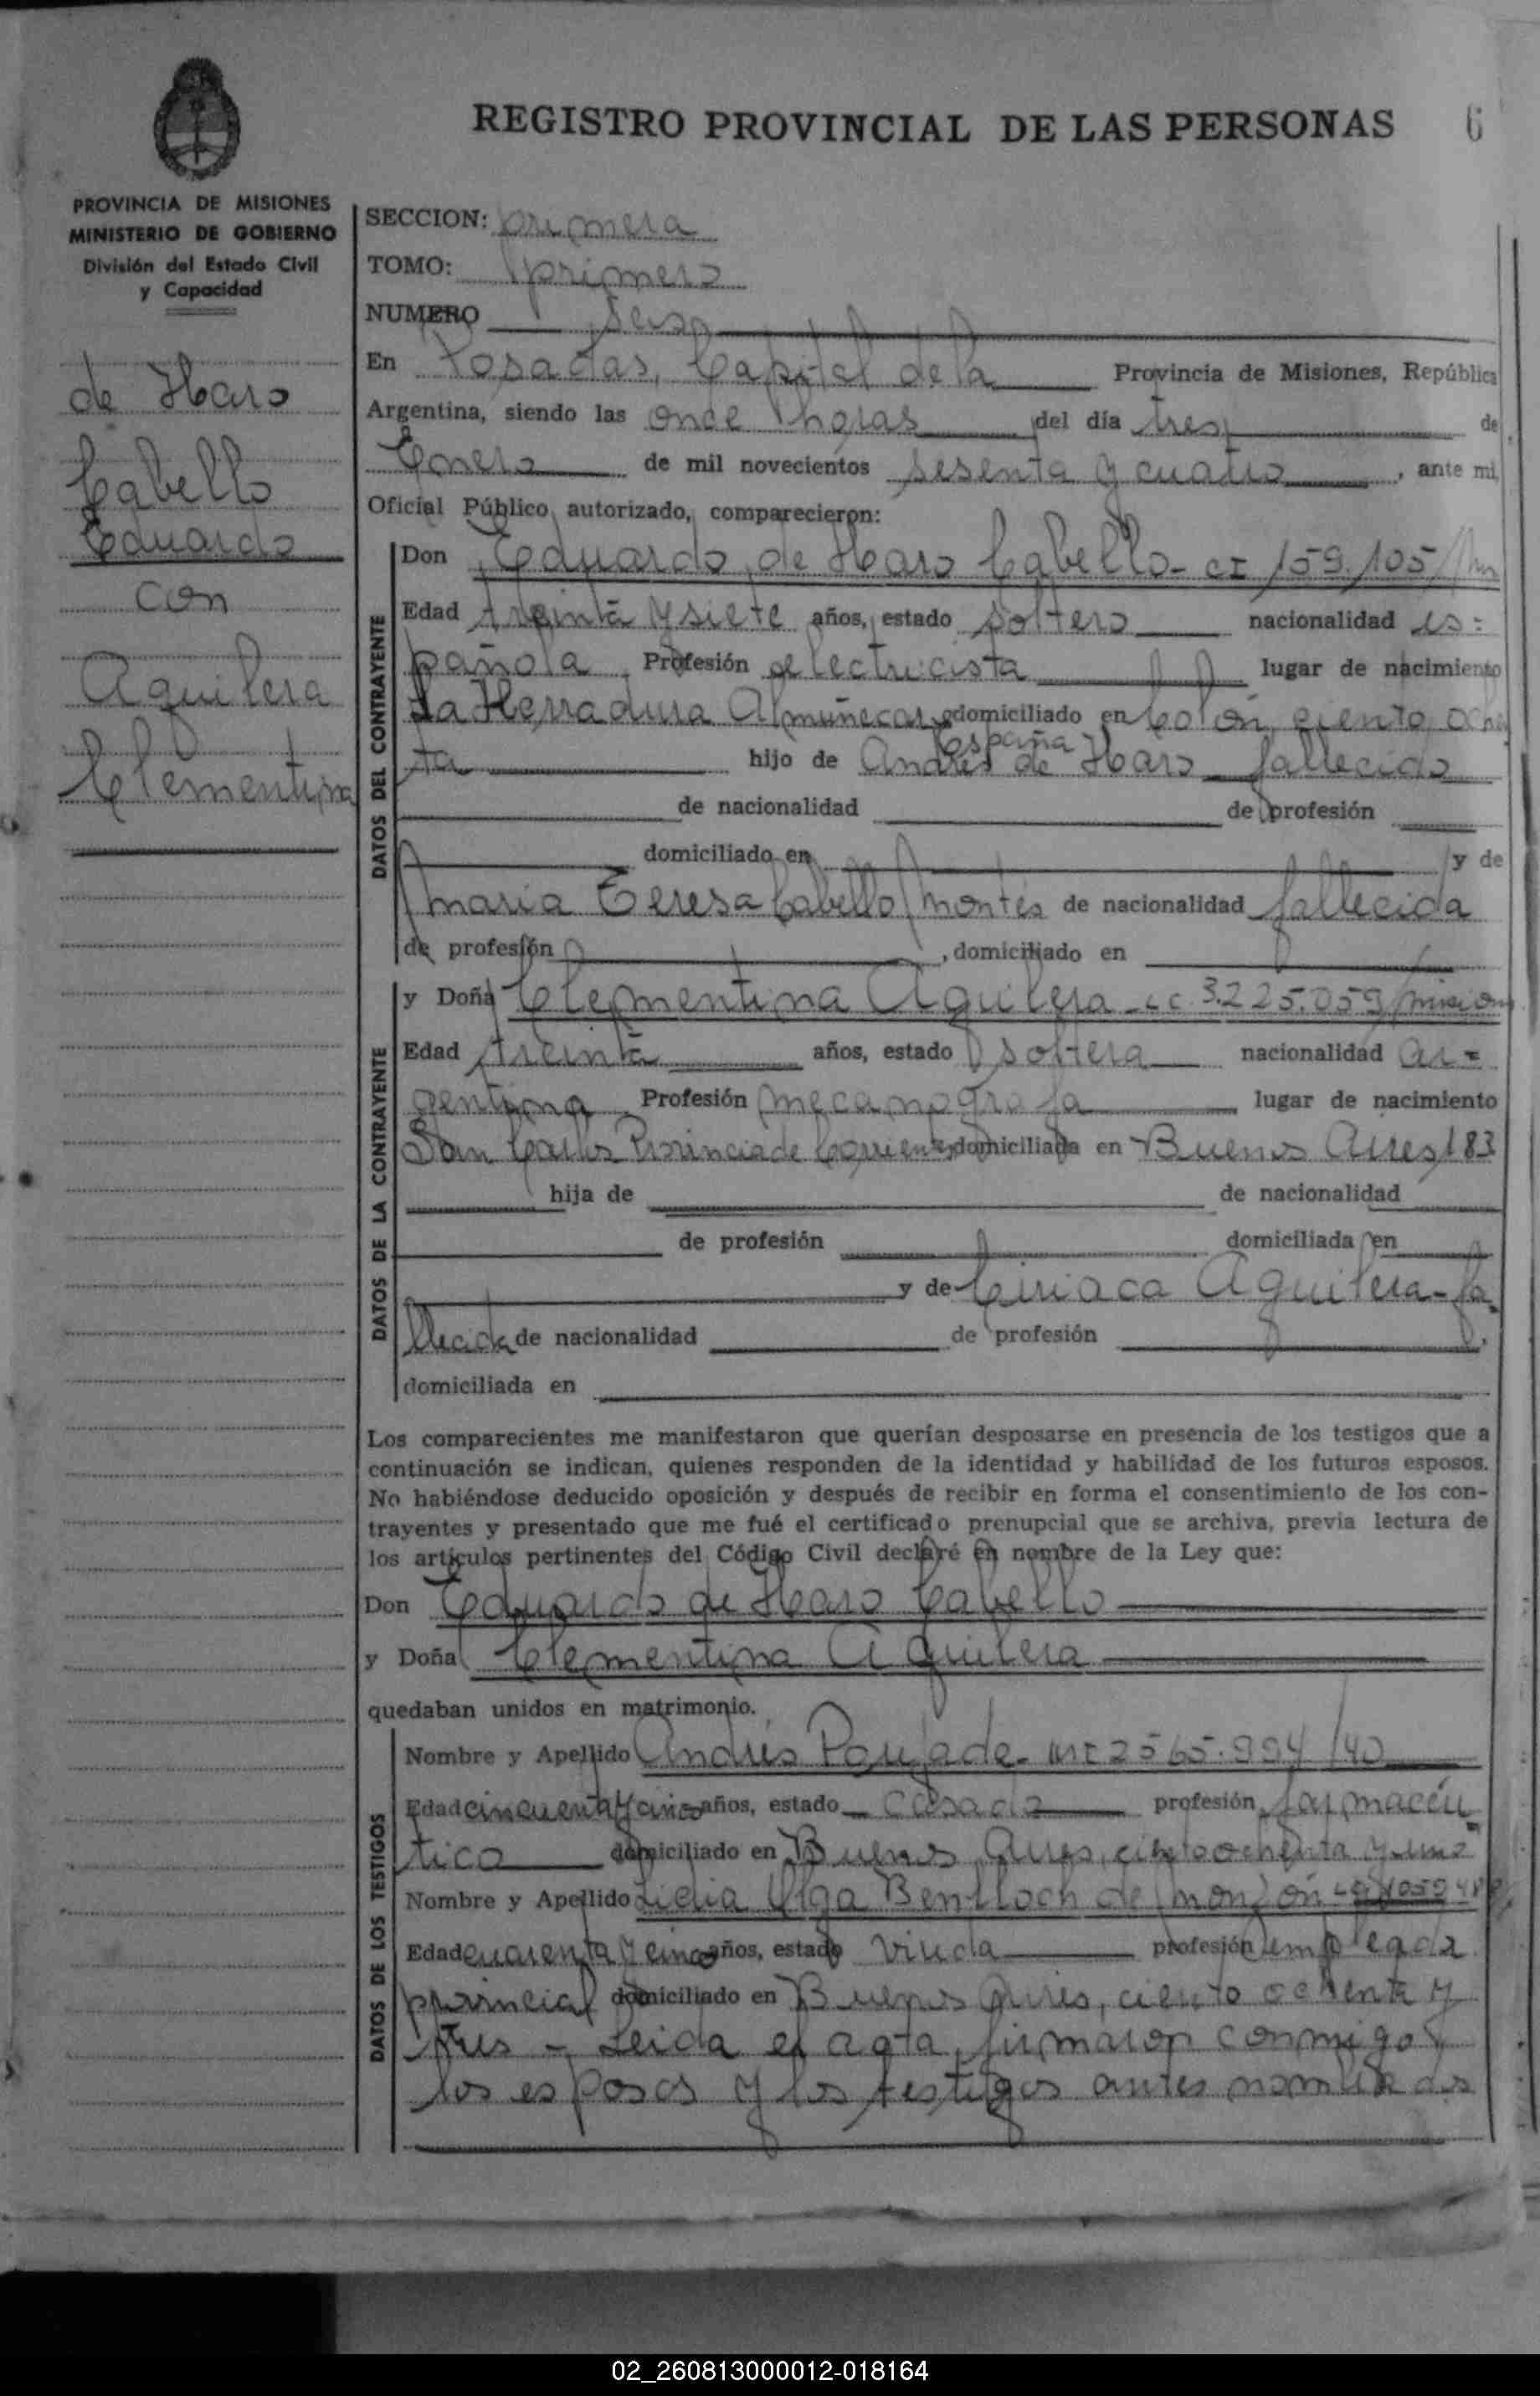 REGISTRO PROVINCIAL DE LAS PERSONAS 6
PROVINCIA DE MISIONES
MINISTERIO DE GOBIERNO
División del Estado Civil
y Capacidad
de Haro
Cabello
Eduardo
con
Aguilera
Clementina
SECCION: primera
TOMO: primero
NUMERO seis
En Posadas, Capital de la Provincia de Misiones, República
Argentina, siendo las once horas del día tres de
Enero de mil novecientos sesenta y cuatro, ante mi,
Oficial Público autorizado, comparecieron:
DATOS DEL CONTRAYENTE
Don Eduardo de Haro Cabello - CI 159.105
Edad treinta y siete años, estado soltero nacionalidad es=
pañola Profesión electricista lugar de nacimiento
La Herradura Almuñecar domiciliado en Colón, ciento oche
España
ta hijo de Andrés de Haro fallecido
de nacionalidad de profesión
domiciliado en y de
Maria Teresa Cabello Montes de nacionalidad fallecida
de profesión , domiciliado en
DATOS DE LA CONTRAYENTE
y Doña Clementina Aguilera - LC 3.225.059
Edad treinta años, estado soltera nacionalidad ar=
gentina Profesión mecanografa lugar de nacimiento
San Carlos Provincia de Corrientes domiciliada en Buenos Aires 183
hija de de nacionalidad
de profesión domiciliada en
y de Ciriaca Aguilera - fa
llecida de nacionalidad de profesión
domiciliada en
Los comparecientes me manifestaron que querían desposarse en presencia de los testigos que a
continuación se indican, quienes responden de la identidad y habilidad de los futuros esposos.
No habiéndose deducido oposición y después de recibir en forma el consentimiento de los con-
trayentes y presentado que me fué el certificado prenupcial que se archiva, previa lectura de
los artículos pertinentes del Código Civil declaré en nombre de la Ley que:
Don Eduardo de Haro Cabello
y Doña Clementina Aguilera
quedaban unidos en matrimonio.
DATOS DE LOS TESTIGOS
Nombre y Apellido Andrés Poujade - MI 2565.994/40
Edad cincuenta y cinco años, estado casado profesión farmacéu
tico domiciliado en Buenos Aires, ciento ochenta y uno
Nombre y Apellido Lidia Olga Benlloch de Monzón
Edad cuarenta y cinco años, estado viuda profesión empleada
provincial domiciliado en Buenos Aires, ciento ochenta y
tres - Leida el acta, firmaron conmigo
los esposos y los testigos antes nombrados
02_260813000012-018164